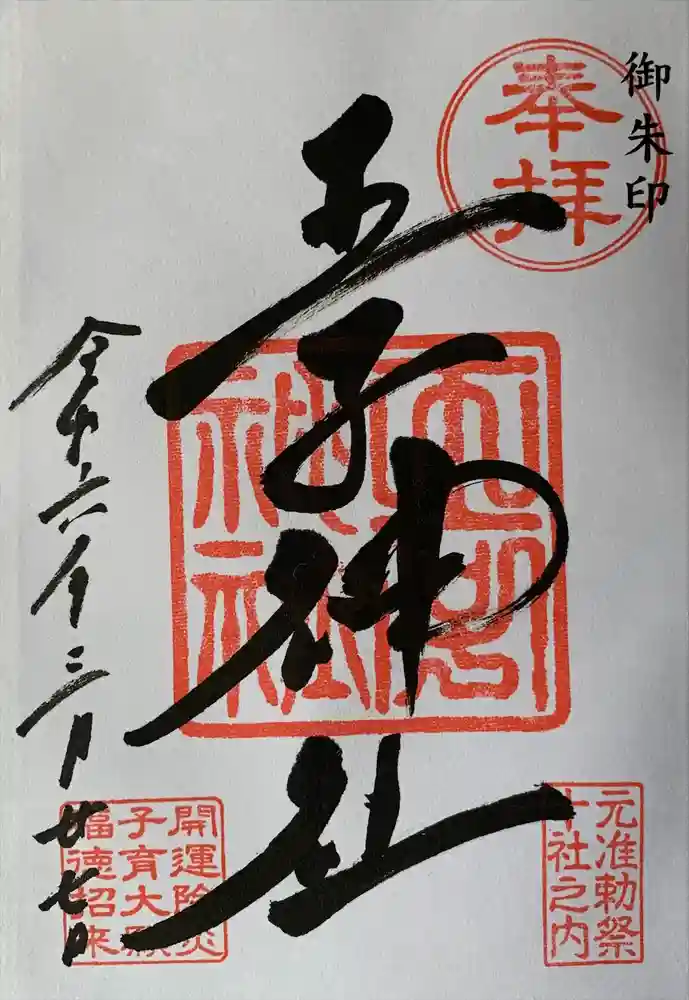 御朱印
奉拝
王子神社
元准勅祭
十社之内
令和六年三月廿七日
開運除災
子育大願
福徳招来